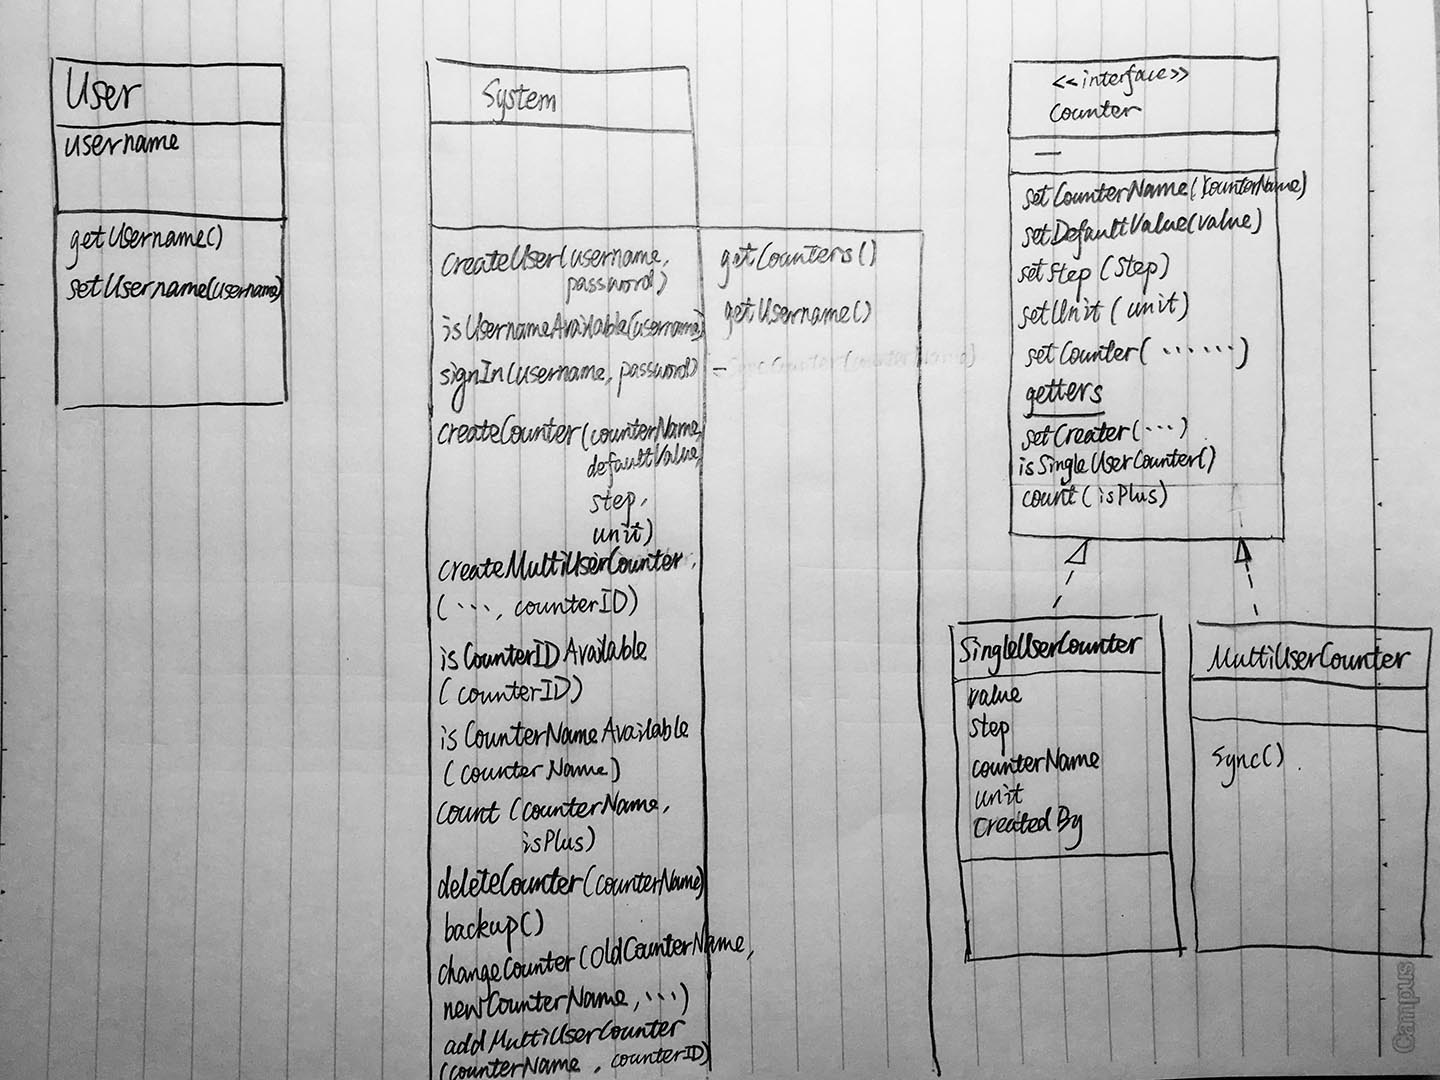 User
username
getUsername()
setUsername(username)
System
createUser(username,
password)
isUsernameAvailable(username)
signIn(username, password)
createCounter(counterName,
defaultValue,
step,
unit)
createMultiUserCounter
(..., counterID)
isCounterIDAvailable
(counterID)
isCounterNameAvailable
(counterName)
count(counterName,
isPlus)
deleteCounter(counterName)
backup()
changeCounter(oldCounterName,
newCounterName, ...)
addMultiUserCounter
(counterName, counterID)
getCounters()
getUsername()
<<interface>>
Counter
—
setCounterName(counterName)
setDefaultValue(value)
setStep(step)
setUnit(unit)
setCounter(......)
getters
setCreater(...)
isSingleUserCounter()
count(isPlus)
SingleUserCounter
value
step
counterName
unit
createdBy
MultiUserCounter
sync()
Campus